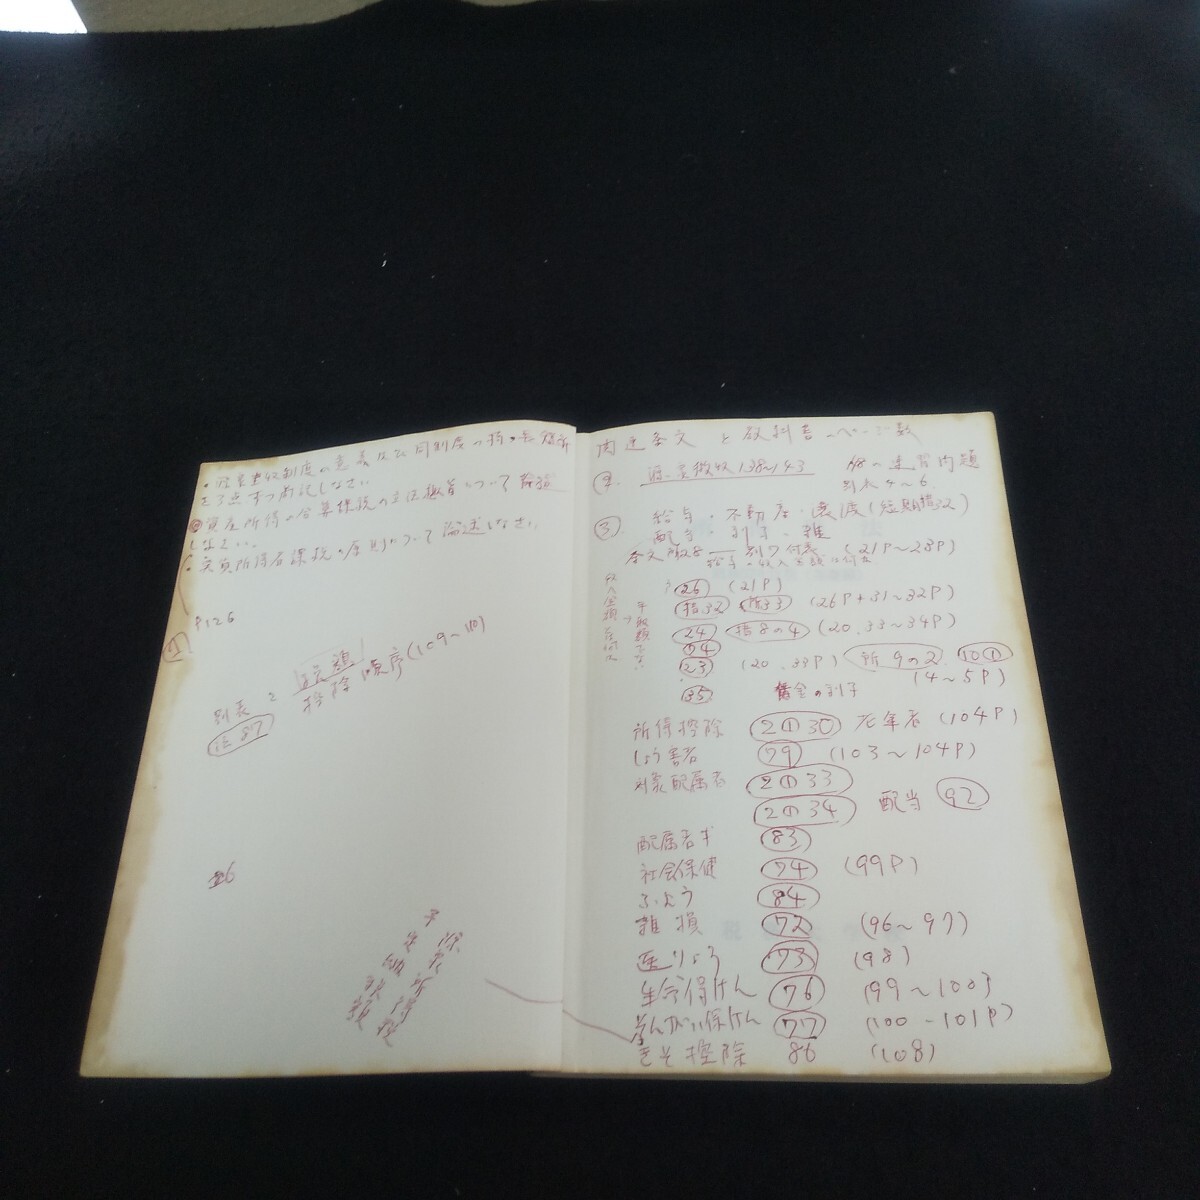 ・源泉徴収制度の意義及び同制度の特長短所
を3点ずつ略記しなさい
資産所得の合算課税の方法概算について論述
しなさい。
・実質所得者課税の原則について論述しなさい
P126
別表と 控除順序(109~110)
法87
26
予定納税額
源泉所得税
関連条文と教科書のページ数
源泉徴収138~143
の練習問題
別表4~6
③ 給与・不動産・譲渡(短期措32)
配当・利子・雑
(21P~28P)
収入金額
26 (21P)
措32 所33 (26P+31~32P)
24 措8の4 (20.33~34P)
24
23 (20.33P) 所9の2 10①
(4~5P)
35
所得控除 2の30 老年者(104P)
しょう害者 79 (103~104P)
対象配属者 2の33
2の34 配当 92
配属者 83
社会保健 74 (99P)
ふよう 84
雑損 72 (96~97)
医りょう 73 (98)
生命保けん 76 (99~100)
そんがい保けん 77 (100~101P)
きそ控除 86 (108)